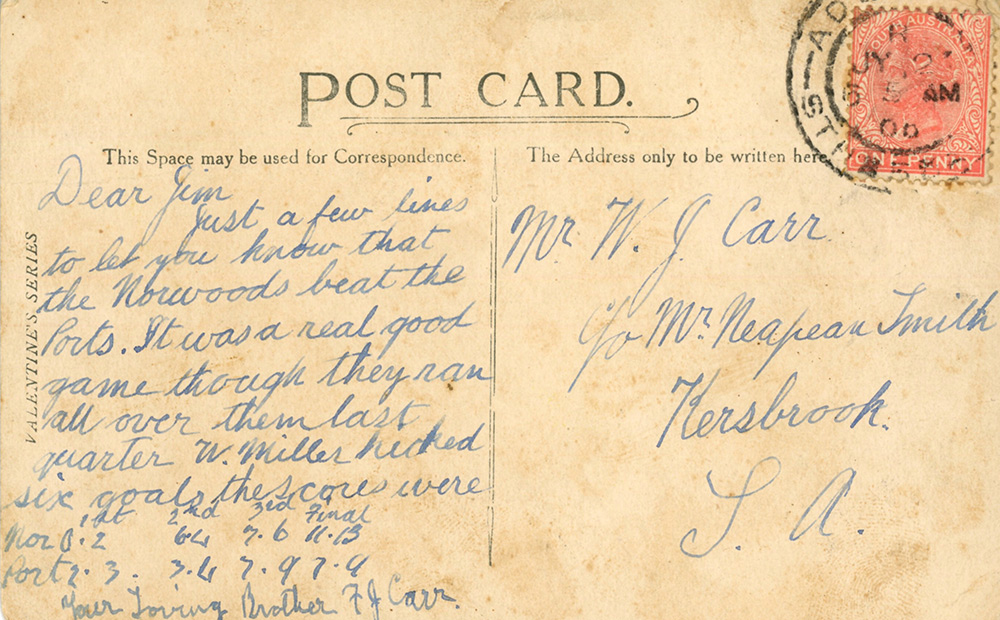 POST CARD.
This Space may be used for Correspondence.
The Address only to be written here
VALENTINE'S SERIES
Dear Jim
Just a few lines
to let you know that
the Norwoods beat the
Ports. It was a real good
game though they ran
all over them last
quarter W. Miller kicked
six goals the scores were
1st 2nd 3rd Final
Nor 0.2 6.4 7.6 11.13
Port 2.3. 3.4 7.9 7.9
Your Loving Brother F J. Carr.
Mr. W. J Carr
c/o Mr. Neapean Smith
Kersbrook.
S. A.
SOUTH AUSTRALIA
ONE PENNY
AM